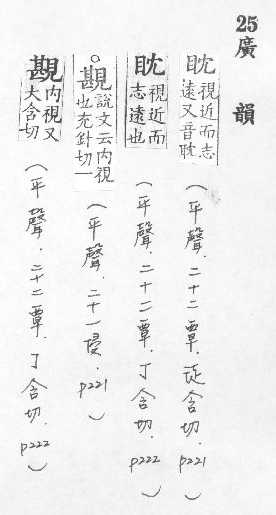 25廣韻
眈視近而志遠又音耽（平聲．二十二覃．徒含切．p221）
眈視近而志遠也（平聲．二十二覃．丁含切．p222）
○𧡪說文云內視也充針切一（平聲．二十一侵．p221）
𧡪內視又大含切（平聲．二十二覃．丁含切．p222）